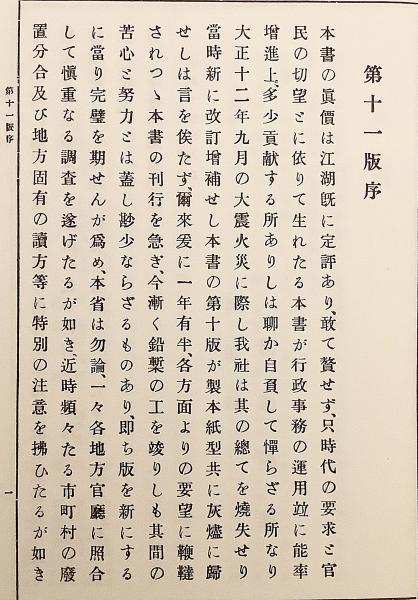 第十一版序
本書の眞價は江湖既に定評あり、敢て贅せず、只時代の要求と官
民の切望とに依りて生れたる本書が行政事務の運用竝に能率
增進上、多少貢獻する所ありしは聊か自負して憚らざる所なり
大正十二年九月の大震火災に際し我社は其の總てを燒失せり
當時新に改訂增補せし本書の第十版が製本紙型共に灰燼に歸
せしは言を俟たず、爾來爰に一年有半、各方面よりの要望に鞭韃
されつゝ本書の刊行を急ぎ、今漸く鉛槧の工を竣りしも其間の
苦心と努力とは蓋し尠少ならざるものあり、卽ち版を新にする
に當り完璧を期せんが爲め、本省は勿論、一々各地方官廳に照合
して愼重なる調査を遂げたるが如き、近時頻々たる市町村の廢
置分合及び地方固有の讀方等に特別の注意を拂ひたるが如き
第十一版序
一